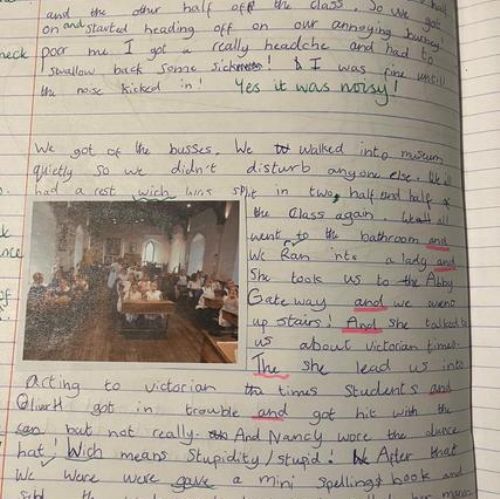 and the other half off the class. So we got
on and started heading off on our annoying
poor me I got a really headche and had to
swallow back some sickness! I was fine until
the noise kicked in! Yes it was noisy!
We got of the busses. We walked into museum
quietly so we didn't disturb anyone else. We all
had a rest wich split in two, half and half
the class again. We all
went to the bathroom and
We Ran into a lady and
She took us to the Abby
Gateway and we went
up stairs! And she talked to
us about victorian times.
The she lead us into
acting to victorian times Students and
Oliver H got in trouble and got hit with the
but not really. And Nancy wore the dunce
hat! Wich means Stupidity/stupid! After that
We were gave a mini spelling book and